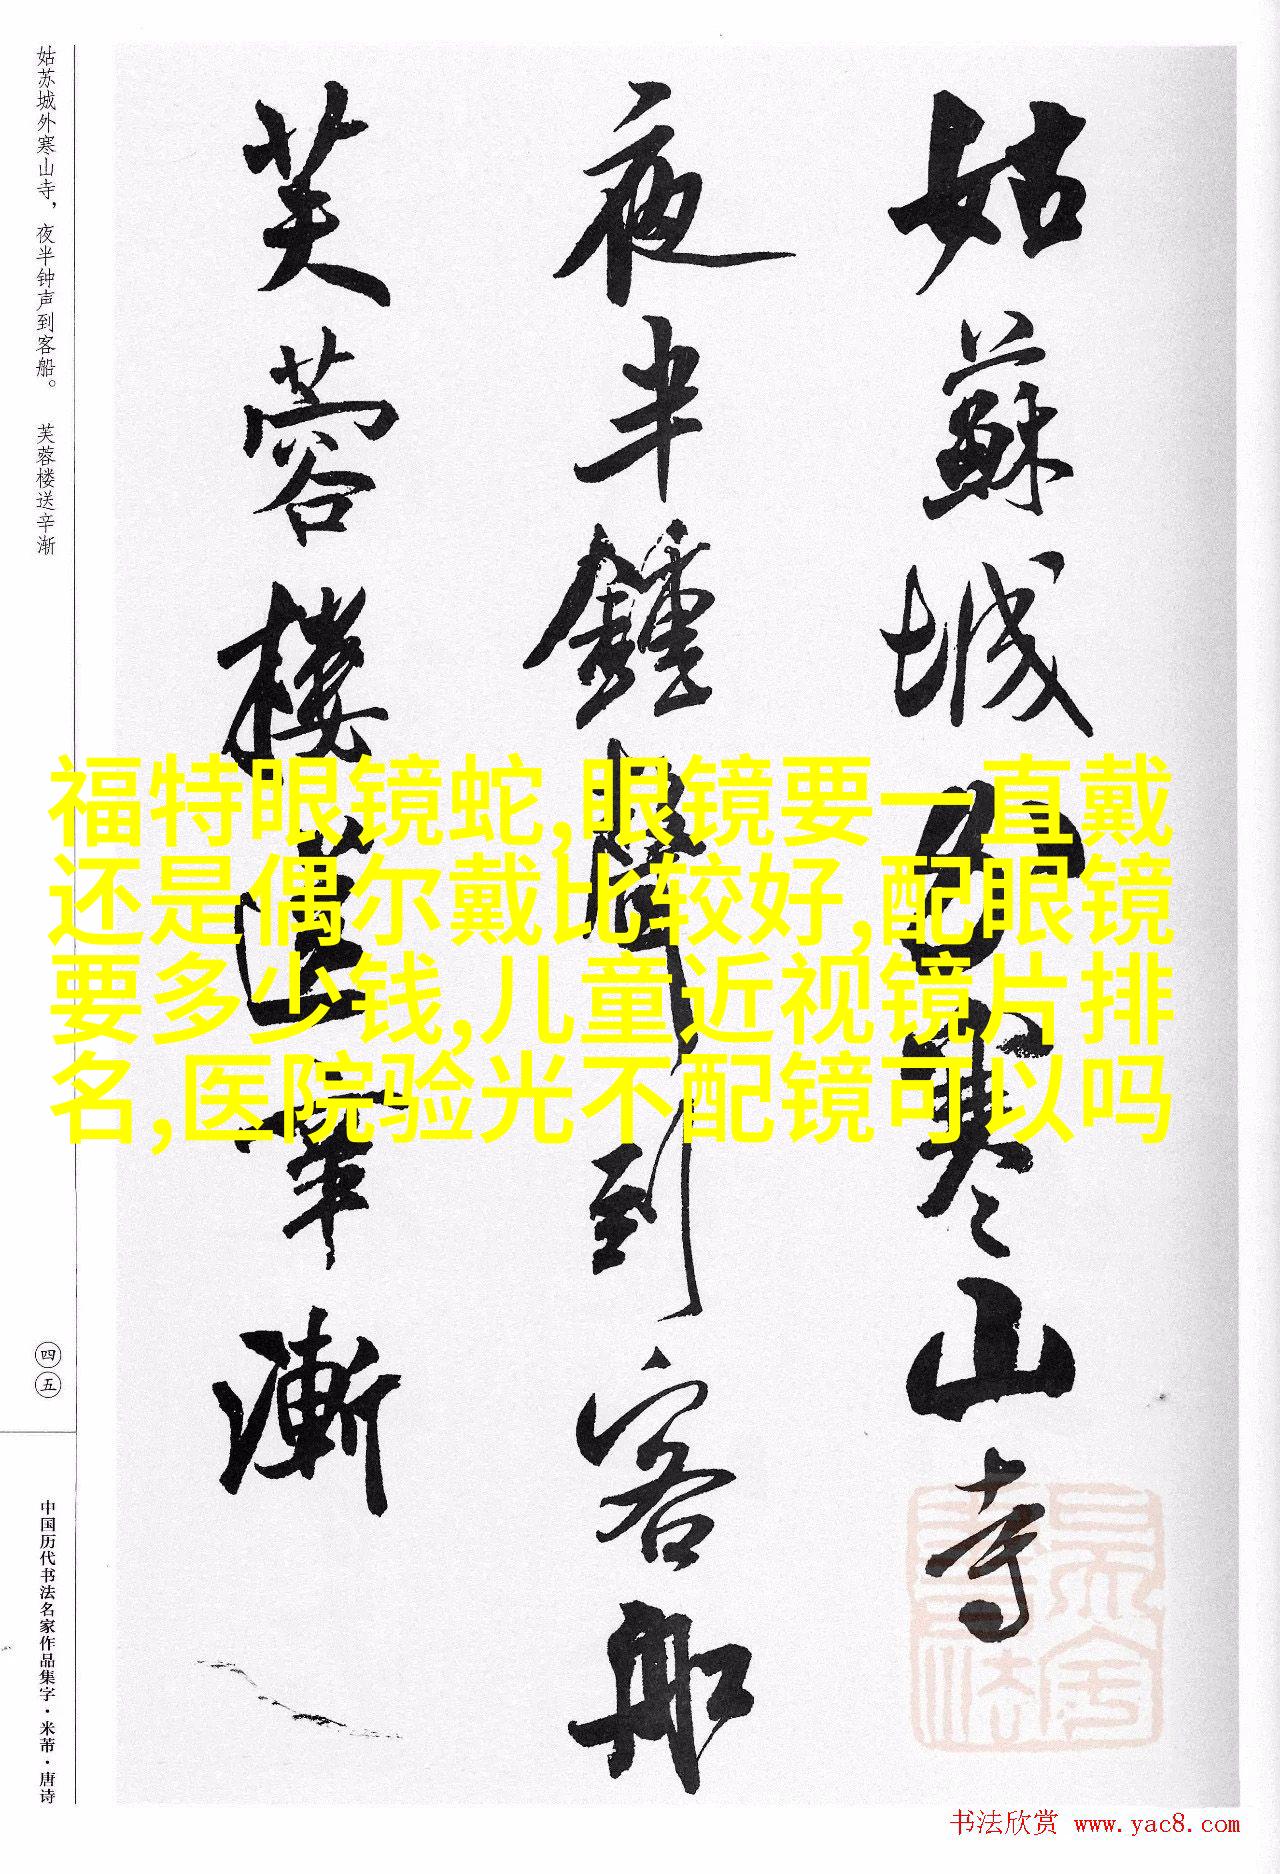 姑苏城外寒山寺，夜半钟声到客船。 芙蓉楼送辛渐
姑蘇城外寒山寺
夜半鐘聲到客船
芙蓉樓送辛漸
福特眼镜蛇,眼镜要一直戴
还是偶尔戴比较好,配眼镜
要多少钱,儿童近视镜片排
名,医院验光不配镜可以吗
四五
中国历代书法名家作品集字·米芾·唐诗
书法欣赏 www.yac8.com